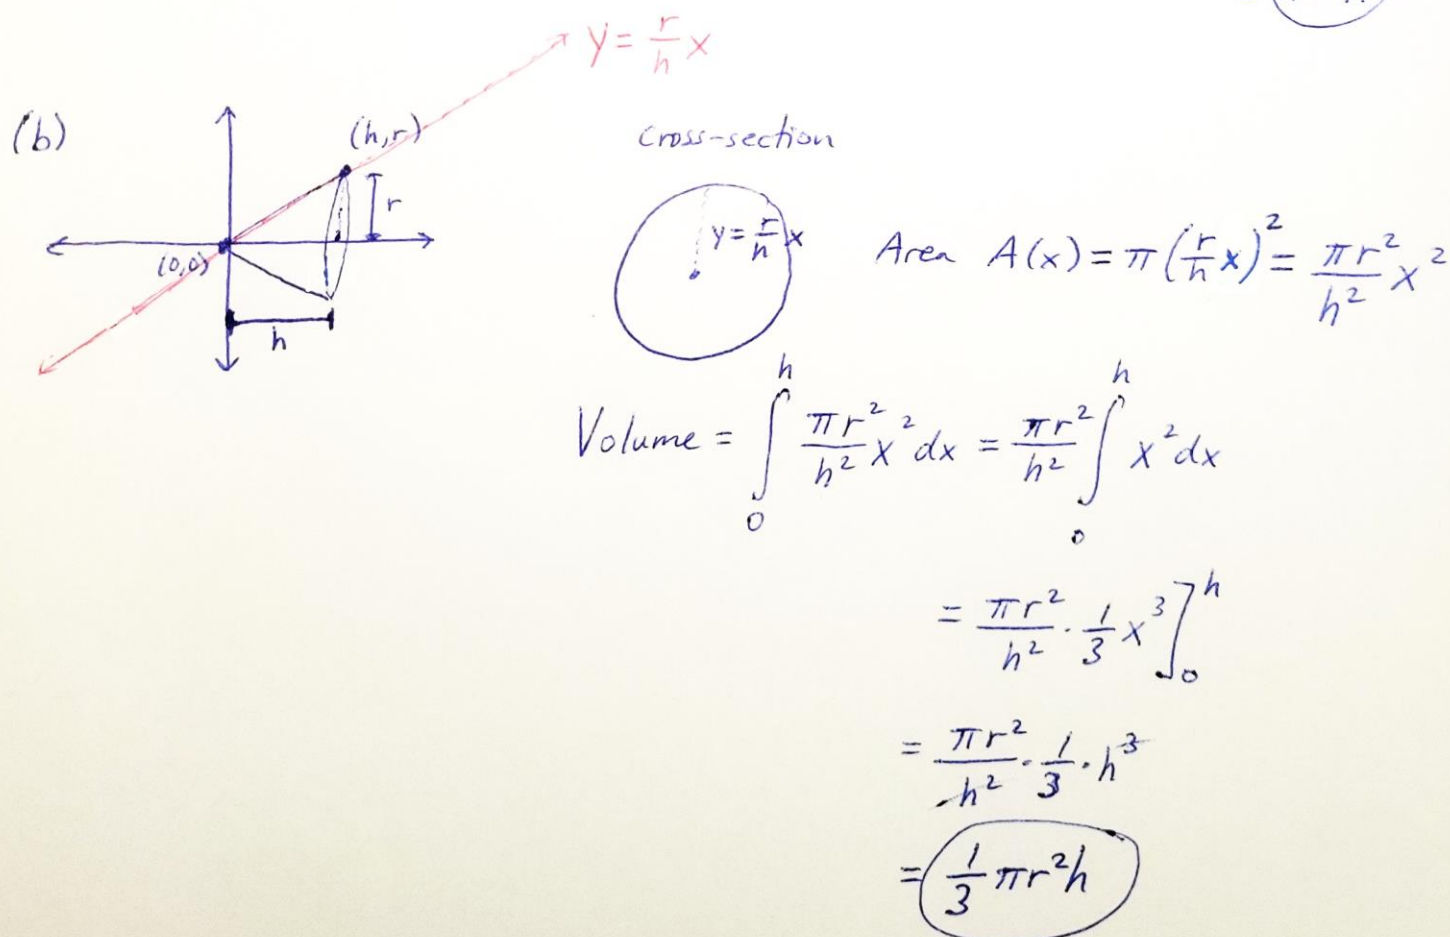 y = r/h x
(b)
(h,r)
r
(0,0)
h
cross-section
y = r/h x
Area A(x) = π(r/h x)² = πr²/h² x²
Volume = ∫₀ʰ πr²/h² x² dx = πr²/h² ∫₀ʰ x² dx
= πr²/h² · 1/3 x³]₀ʰ
= πr²/h² · 1/3 · h³
= 1/3 πr²h